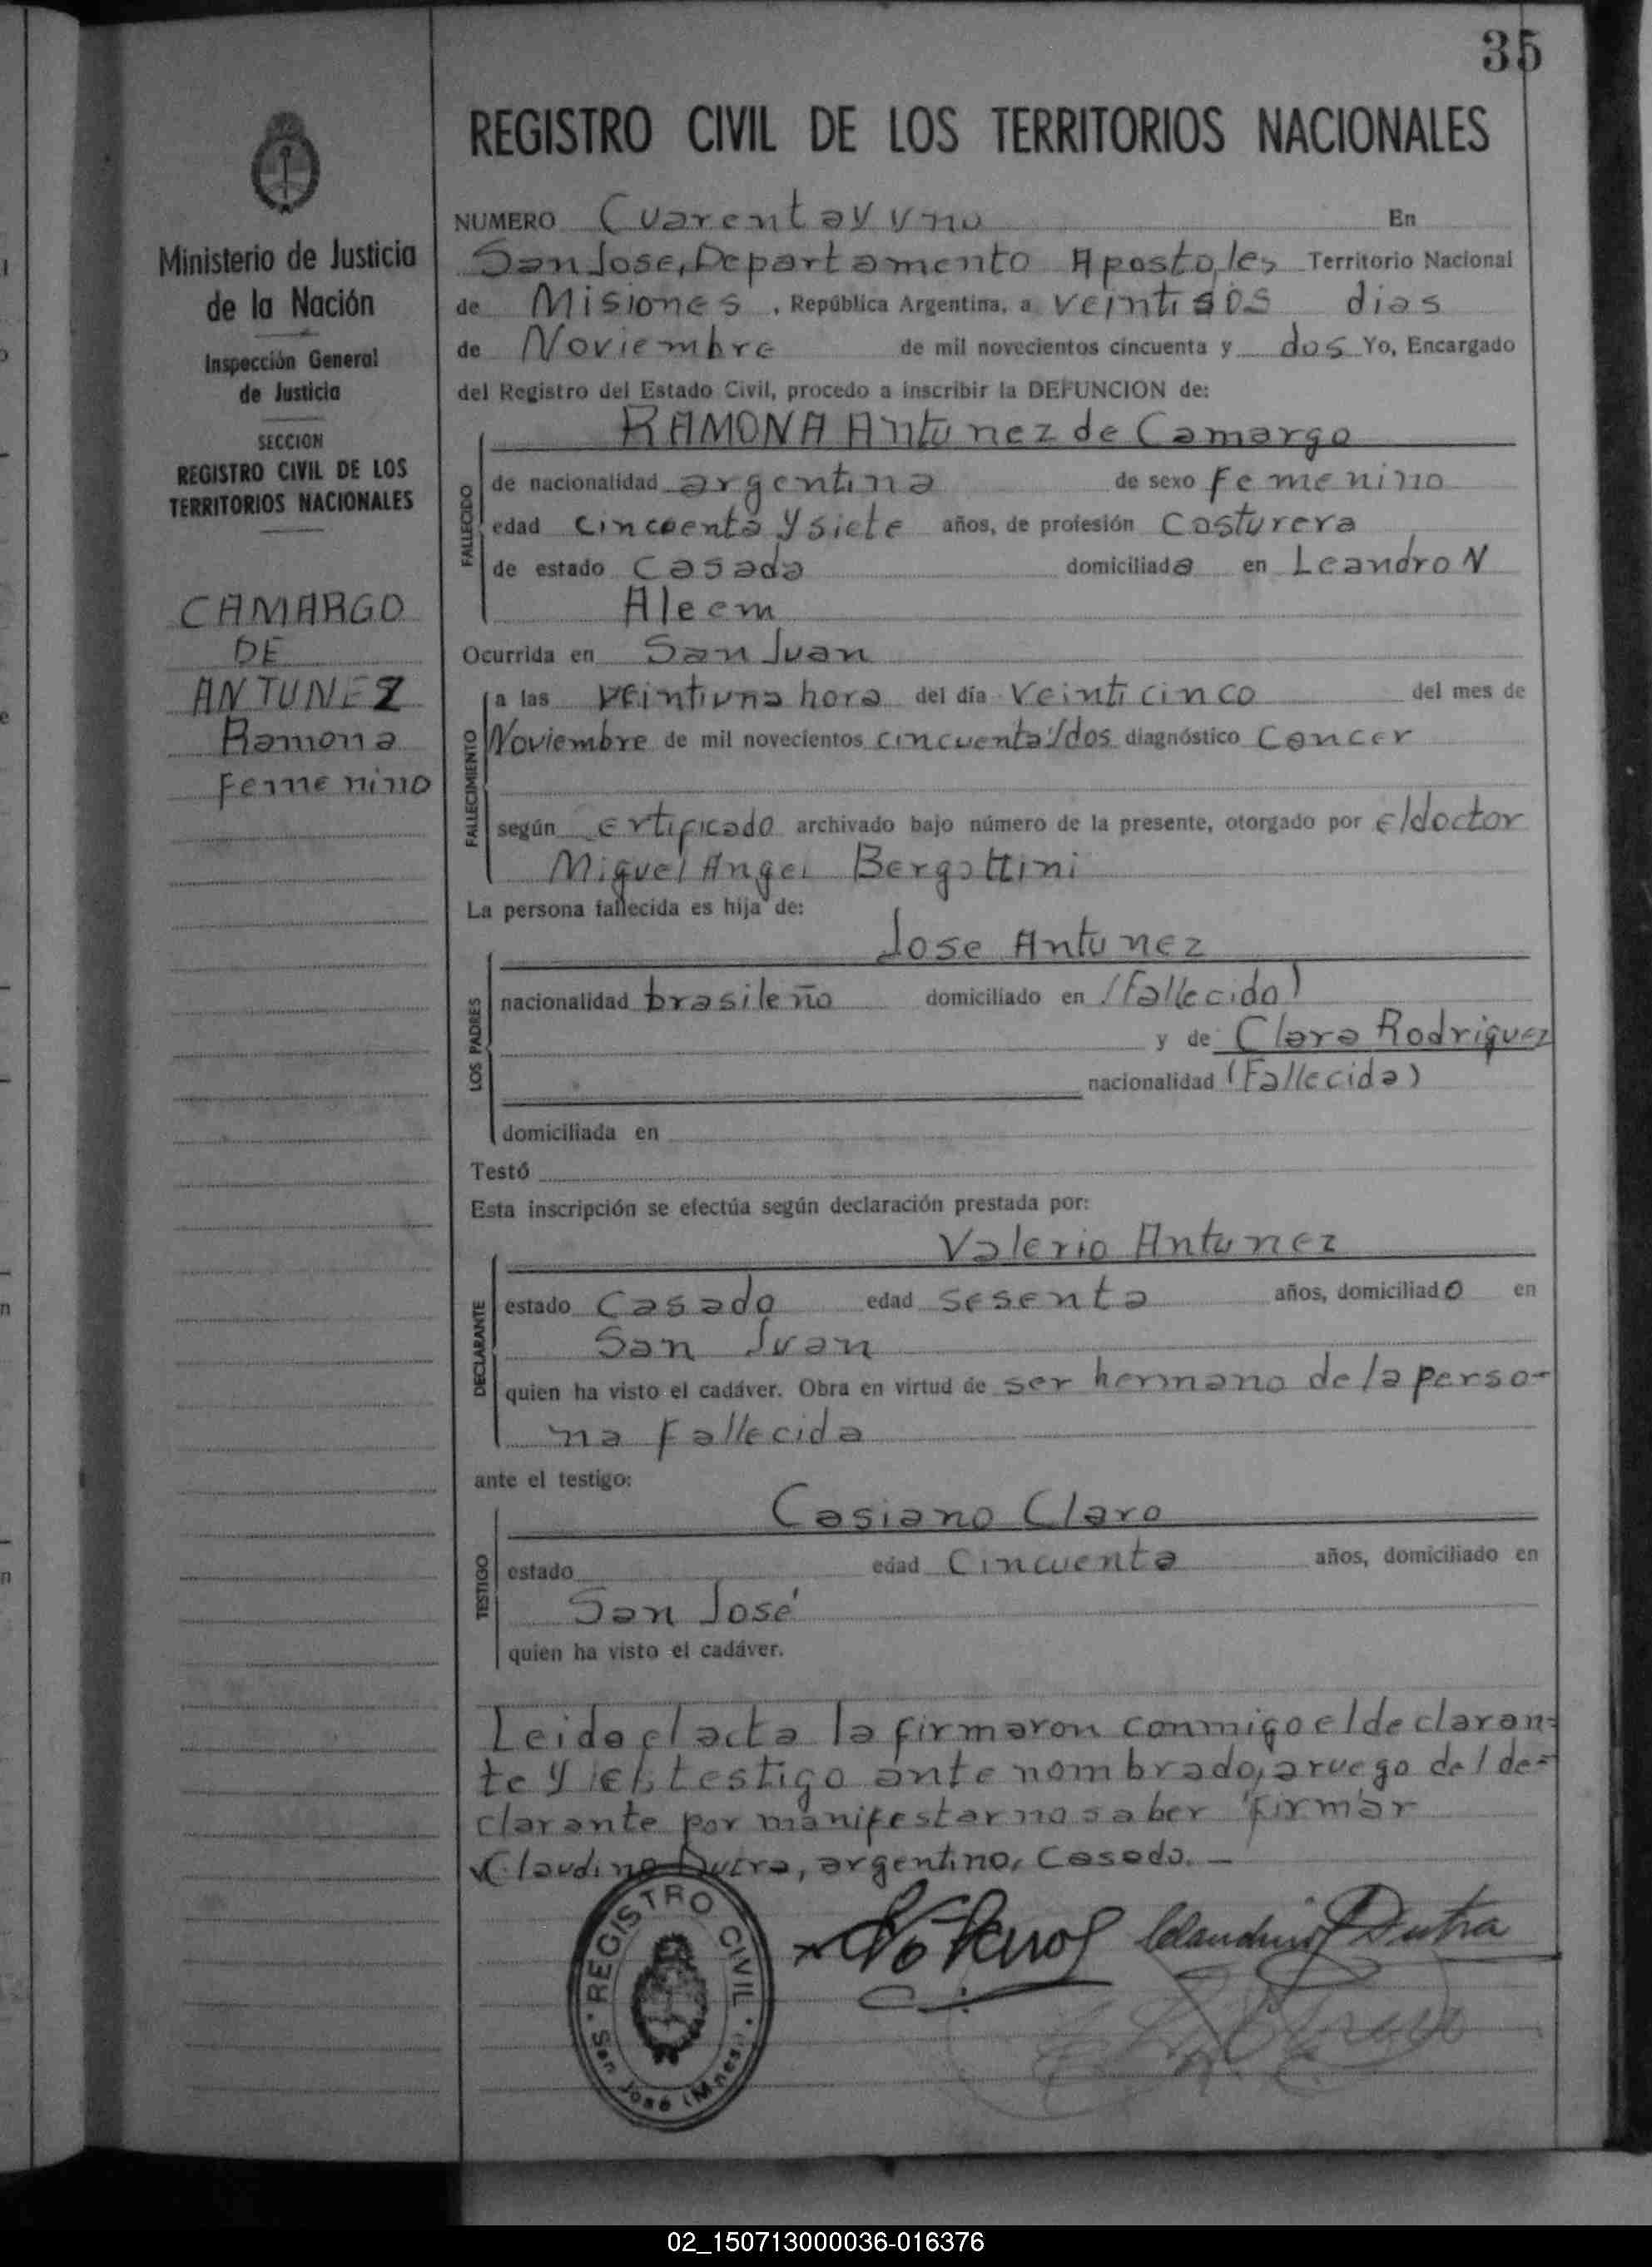 35
REGISTRO CIVIL DE LOS TERRITORIOS NACIONALES
Ministerio de Justicia
de la Nación
Inspección General
de Justicia
SECCION
REGISTRO CIVIL DE LOS
TERRITORIOS NACIONALES
CAMARGO
DE
ANTUNEZ
Ramona
Femenino
NUMERO Cuarentay uno En
San Jose, Departamento Apostoles Territorio Nacional
de Misiones, República Argentina, a veintisós dias
de Noviembre de mil novecientos cincuenta y dos Yo, Encargado
del Registro del Estado Civil, procedo a inscribir la DEFUNCION de:
RAMONA Antunez de Camargo
FALLECIDO
de nacionalidad argentina de sexo femenino
edad cincoenta y siete años, de profesión Costurera
de estado Casada domiciliada en Leandro N
Aleem
Ocurrida en San Juan
FALLECIMIENTO
a las veintiuna hora del día Veinticinco del mes de
Noviembre de mil novecientos cincuenta y dos diagnóstico Cancer
según certificado archivado bajo número de la presente, otorgado por el doctor
Miguel Angel Bergottini
La persona fallecida es hija de:
Jose Antunez
LOS PADRES
nacionalidad brasileño domiciliado en (Fallecido)
y de Clara Rodriguez
nacionalidad (Fallecida)
domiciliada en
Testó
Esta inscripción se efectúa según declaración prestada por:
Valerio Antunez
DECLARANTE
estado Casado edad sesenta años, domiciliado en
San Juan
quien ha visto el cadáver. Obra en virtud de ser hermano de la perso-
na fallecida
ante el testigo:
Casiano Claro
TESTIGO
estado edad Cincuenta años, domiciliado en
San José
quien ha visto el cadáver.
Leida el acta la firmaron conmigo el declaran=
te y el testigo ante nombrado, a ruego del de=
clarante por manifestar no saber firmar
Claudino Dutra, argentino, Casado. —
REGISTRO CIVIL
San José (Mnes.)
Claudino Dutra
02_150713000036-016376